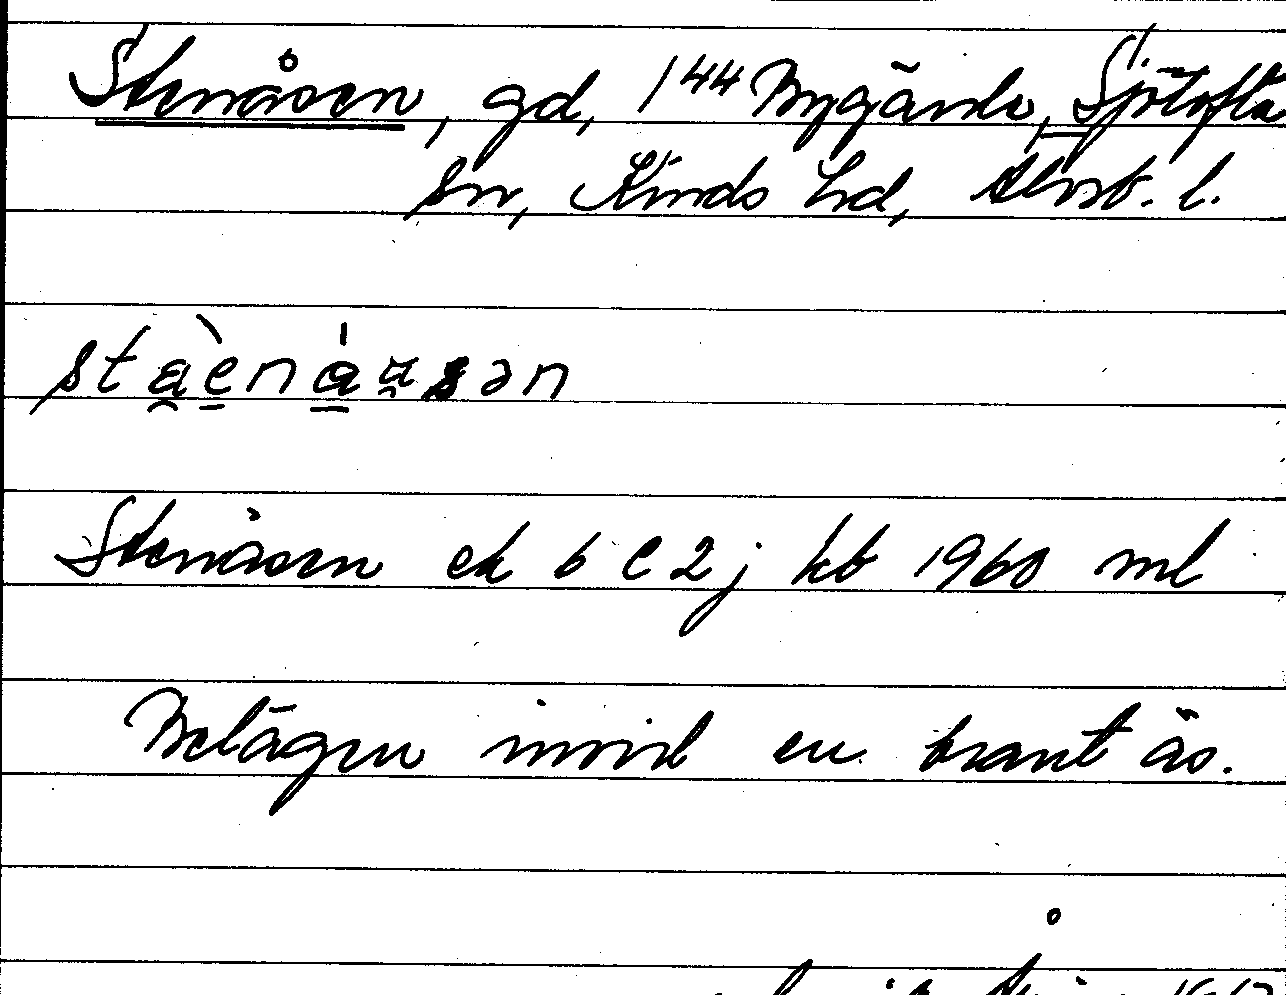 Stenåsen, gd, 1/44 Bygärde, Sjötofta
sn, Kinds hd, Älvsb. l.
Stenåsen ek 6 C 2 j kb 1960 ml
Belägen invid en brant ås.